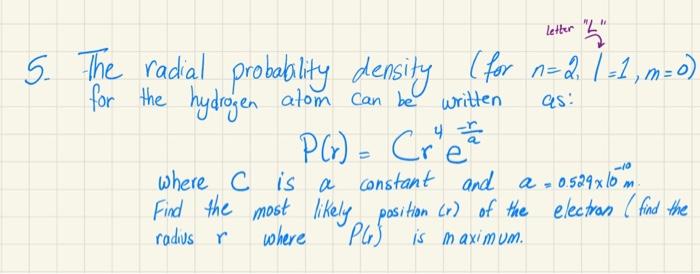 letter "L"
5. The radial probability density (for n=2, l=1, m=0)
for the hydrogen atom can be written as:
P(r) = Cr⁴e^(-r/a)
where C is a constant and a = 0.529x10⁻¹⁰ m.
Find the most likely position (r) of the electron (find the
radius r where P(r) is maximum.